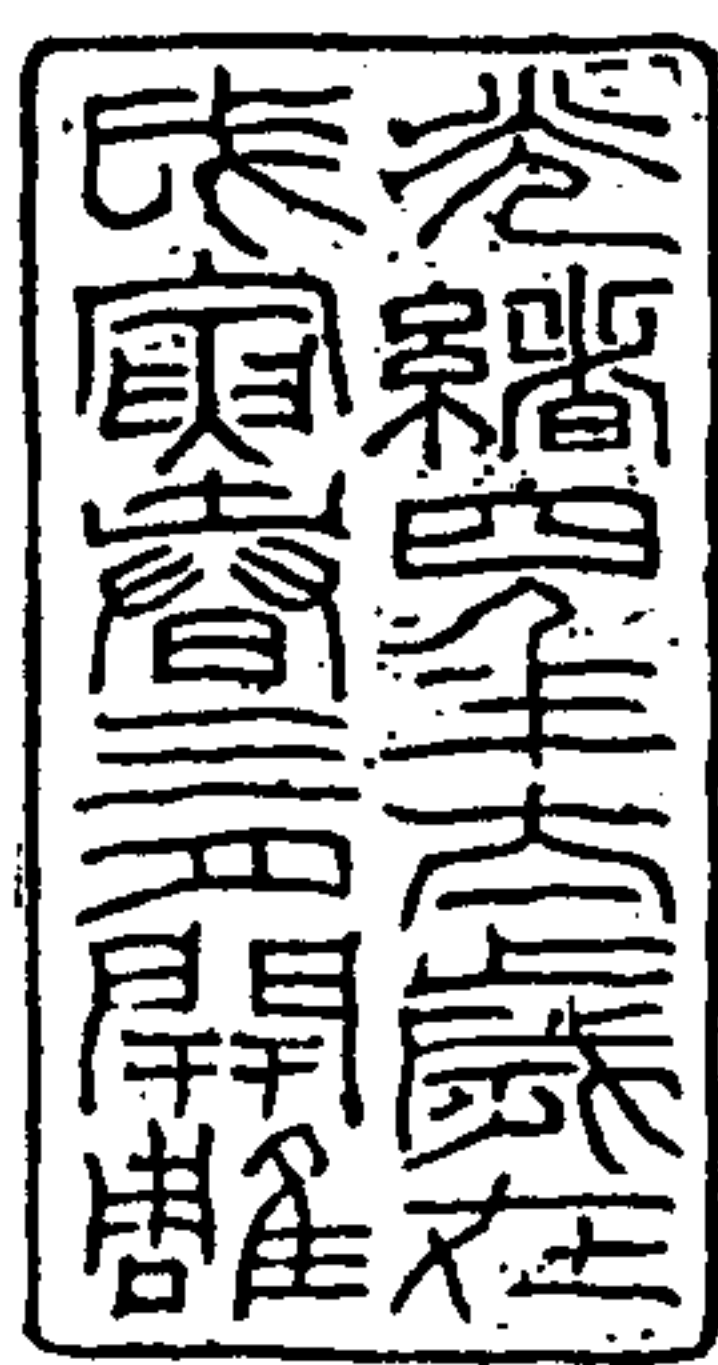 光緒四年太歲在
戊寅春三月開雕